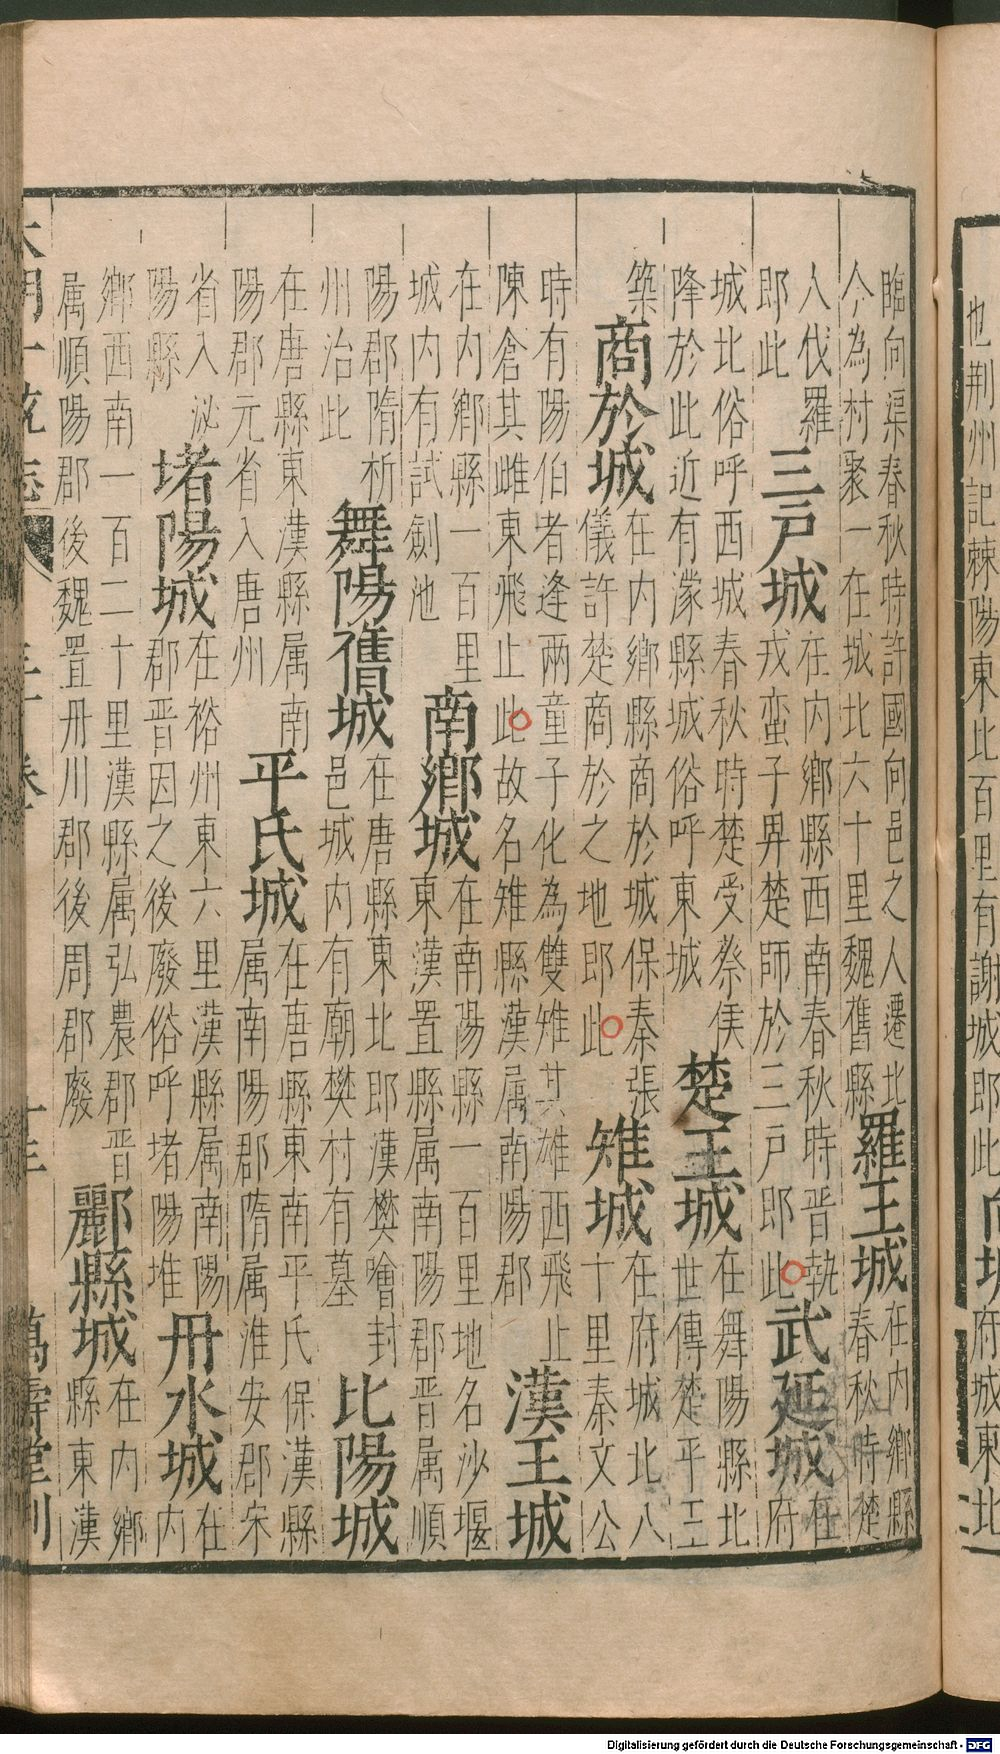 也荆州記棘陽東北百里有謝城即此
向城
府城東北
臨向渠春秋時許國向邑之人遷北
今為村聚一在城北六十里魏舊縣
羅王城
在内鄉縣
春秋時楚
人伐羅
即此
三戸城
在内鄉縣西南春秋時晋執
戎蛮子畀楚師於三戸即此
武延城
在
府
城北俗呼西城春秋時楚受蔡侯
降於此近有濛縣城俗呼東城
楚王城
在舞陽縣北
世傳楚平王
築
商於城
在内鄉縣商於城保秦張
儀許楚商於之地即此
雉城
在府城北八
十里秦文公
時有陽伯者逢兩童子化為雙雉其雄西飛止
陳倉其雌東飛止此故名雉縣漢属南陽郡
漢王城
在内鄉縣一百里
城内有試劍池
南鄉城
在南陽縣一百里地名沙堰
東漢置縣属南陽郡晋属順
陽郡隋析
州治此
舞陽舊城
在唐縣東北即漢樊噲封
邑城内有廟樊村有墓
比陽城
在唐縣東漢縣属南
陽郡元省入唐州
平氏城
在唐縣東南平氏保漢縣
属南陽郡隋属淮安郡宋
省入泌
陽縣
堵陽城
在裕州東六里漢縣属南陽
郡晋因之後廢俗呼堵陽堆
丹水城
在
内
鄉西南一百二十里漢縣属弘農郡晋
属順陽郡後魏置丹川郡後周郡廢
酈縣城
在内鄉
縣東漢
大明一統志 三十卷 萬壽堂刋
Digitalisierung gefördert durch die Deutsche Forschungsgemeinschaft - DFG